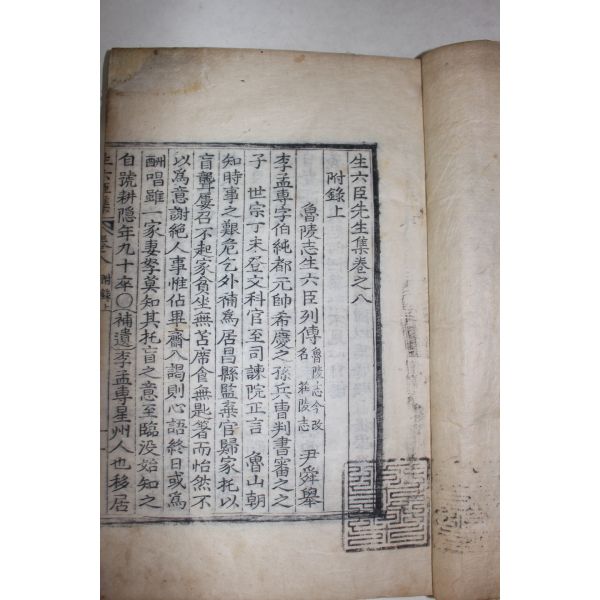 生六臣先生集卷之八
附錄上
魯陵志生六臣列傳 魯陵志今改名莊陵志 尹舜擧
李孟專字伯純都元帥希慶之孫兵曹判書審之之
子 世宗丁未登文科官至司諫院正言 魯山朝
知時事之艱危乞外補爲居昌縣監棄官歸家托以
盲聾屢召不起家貧坐無苫席食無匙箸而怡然不
以爲意謝絕人事惟佔畢齋入謁則心語終日或爲
酬唱雖一家妻孥莫知其托盲之意至臨没始知之
自號耕隱年九十卒〇補遺李孟專星州人也移居
生六臣集 卷八 附錄上 一